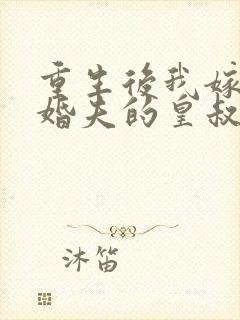 重生後我嫁
婚夫的皇叔
沐笛